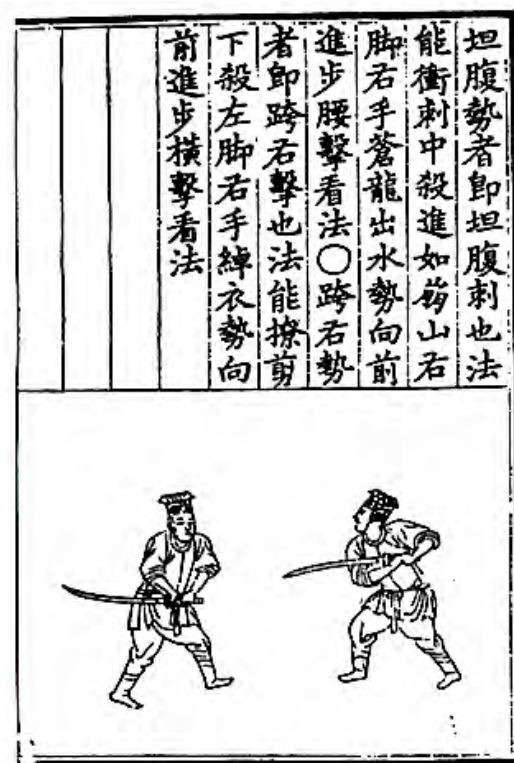 坦腹勢者即坦腹刺也法
能衝刺中殺進如崩山右
脚右手蒼龍出水勢向前
進步腰擊看法○跨右勢
者即跨右擊也法能撩剪
下殺左脚右手綽衣勢向
前進步橫擊看法